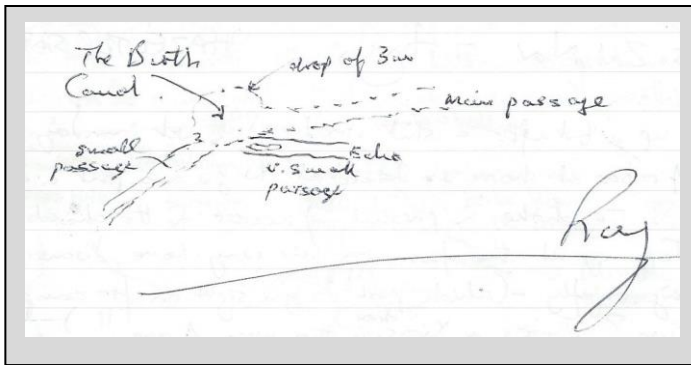 The Birth
Canal
drop of 3m
Main passage
small
passage
?
Echo
v. small
passage
Ray